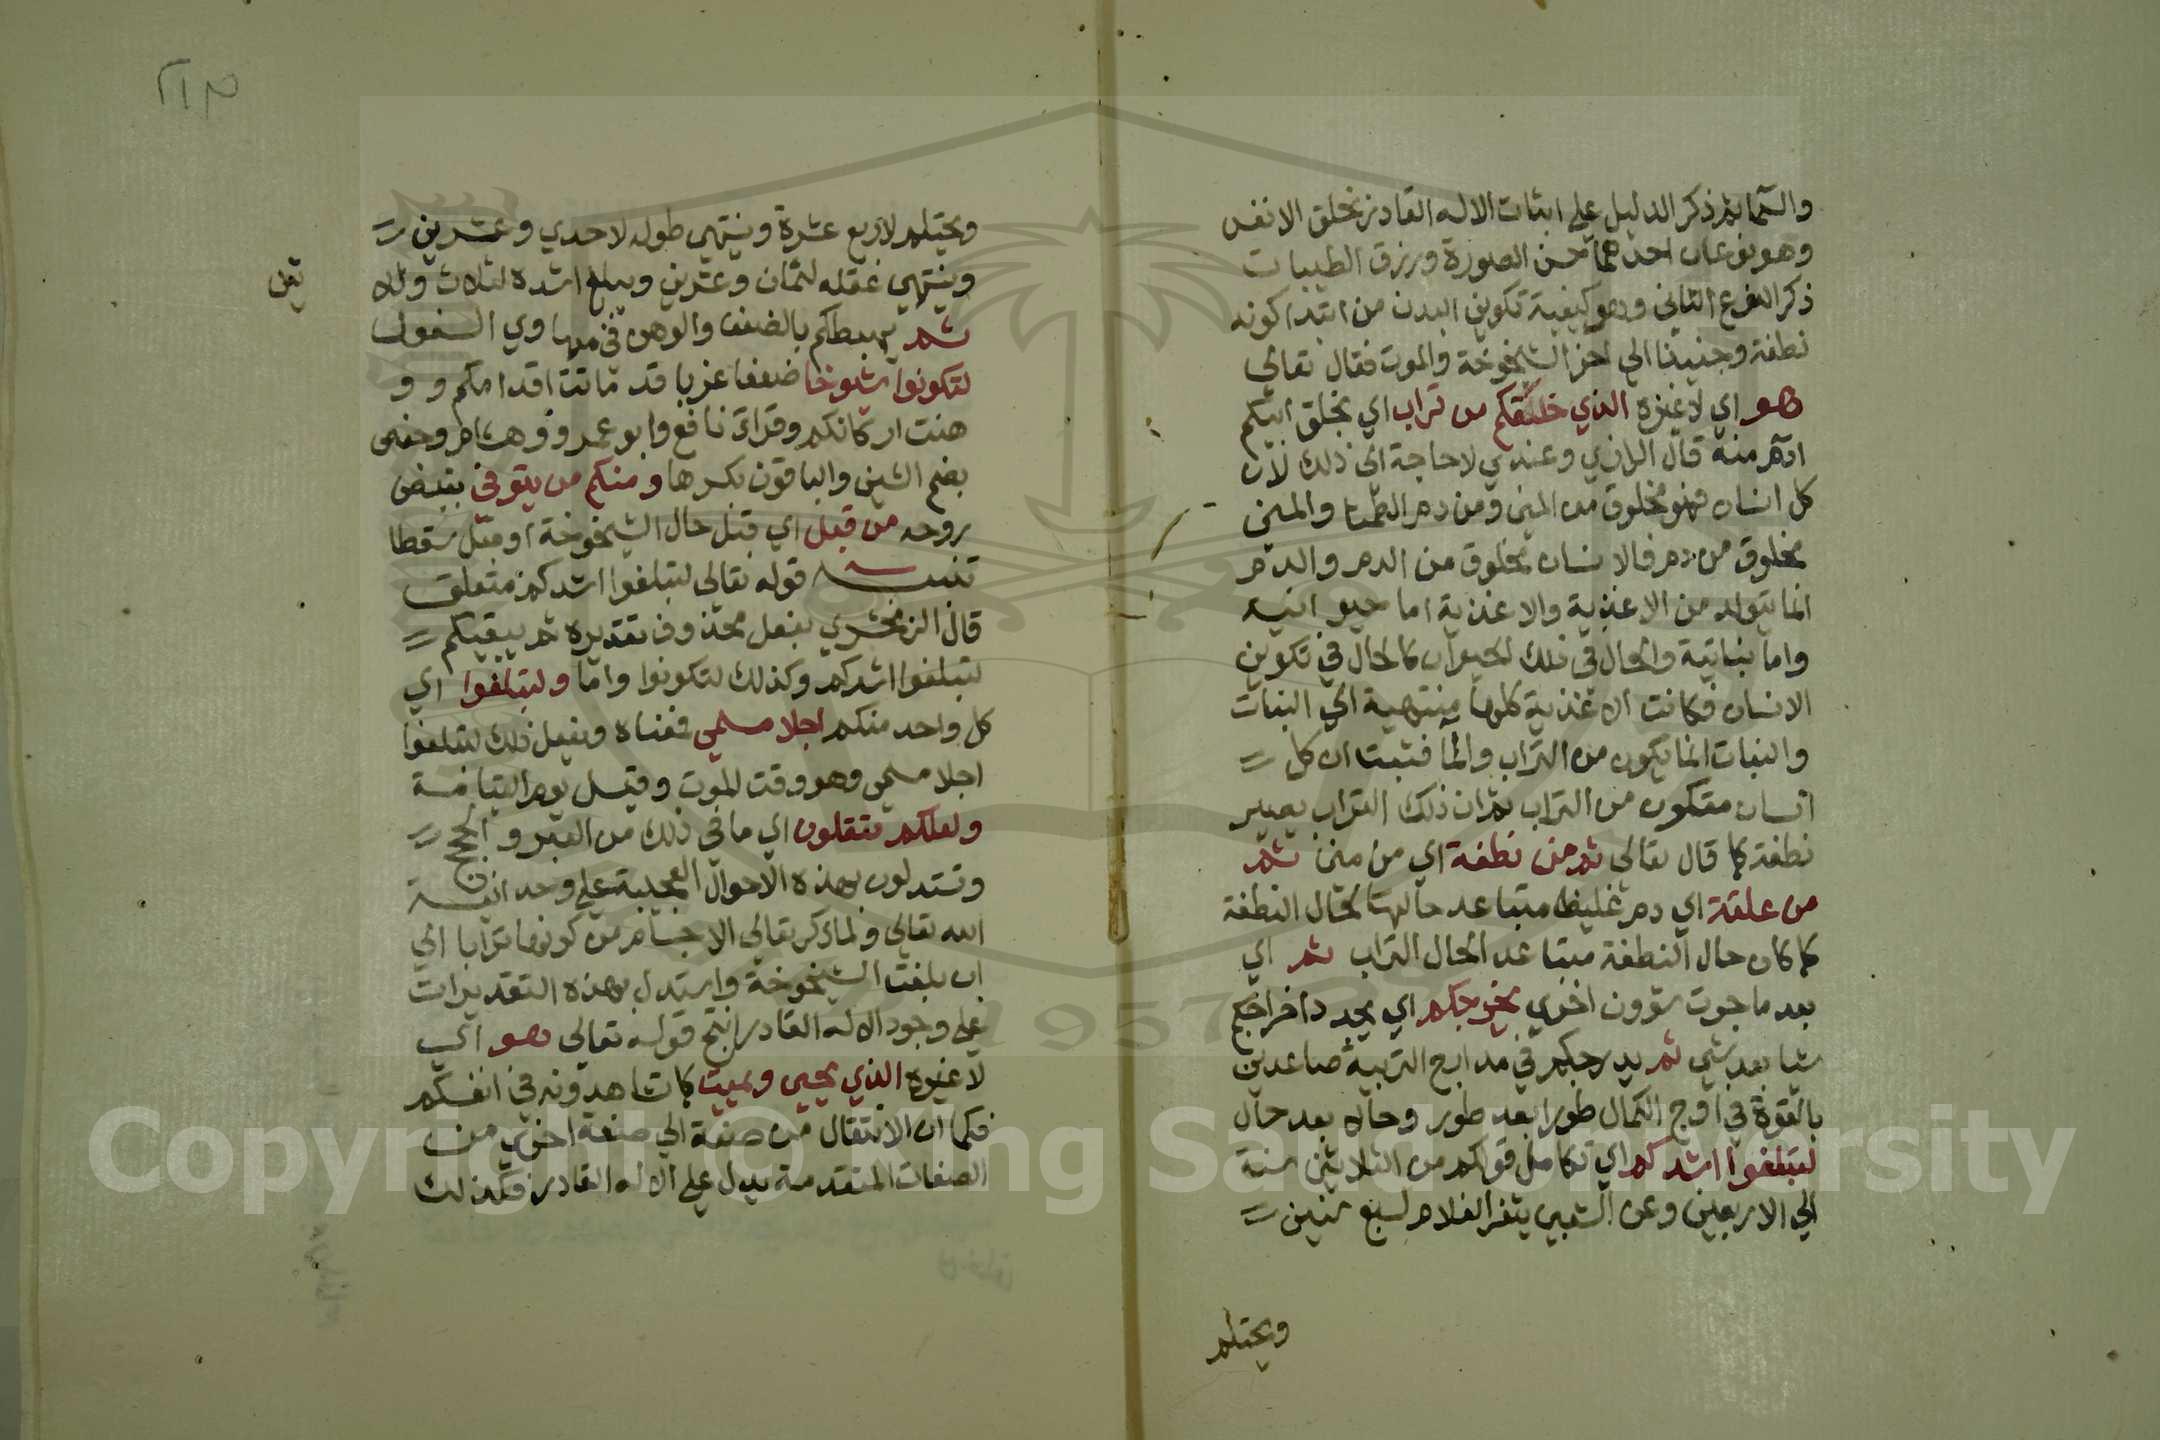 والسما ثم ذكر الدليل علي اثبات الاله القادر بخلق الانفس
وهو نوعان احدهما حسن الصورة ورزق الطيبات
ذكر النوع الثاني وهو كيفية تكوين البدن من ابتدا كونه
نطفة وجنينا الي اخر الشيخوخة والموت فقال تعالي
هو اي لا غيره الذي خلقكم من تراب اي بخلق ابيكم
ادم منه قال الرازي وعندي لا حاجة الي ذلك لان
كل انسان فهو مخلوق من المني ومن دم الطمث والمني
مخلوق من دم فالانسان مخلوق من الدم والدم
انما يتولد من الاغذية والاغذية اما حيوانية
واما نباتية والحال في ذلك الحيوان كالحال في تكوين
الانسان فكانت الاغذية كلها منتهية الي النبات
والنبات انما يكون من التراب والما فثبت ان كل
انسان متكون من التراب ثم ان ذلك التراب يصير
نطفة كما قال تعالي ثم من نطفة اي من مني ثم
من علقة اي دم غليظ متباعد حالها لحال النطفة
كما كان حال النطفة متباعد الحال التراب ثم اي
بعد ما جرت شؤون اخري يخرجكم اي يجدد اخراجكم
شيا بعد شي ثم يدرجكم في مدارج التربية صاعدين
بالقوة في اوج الكمال طورا بعد طور وحالا بعد حال
لتبلغوا اشدكم اي تكامل قوتكم من الثلاثين سنة
الي الاربعين وعن الشعبي يثغر الغلام لسبع سنين
ويحتلم
٢١٣
ويحتلم لاربع عشرة وينتهي طوله لاحدي وعشرين
وينتهي عقله لثمان وعشرين ويبلغ اشده لثلاث وثلا
ثين
ثم يهبطكم بالضعف والوهن في مهاوي السفول
لتكونوا شيوخا ضعفا غربا قد ماتت اقدامكم و و
هنت اركانكم وقرأ نافع وابو عمرو وهشام وحفص
بضم الشين والباقون بكسرها ومنكم من يتوفي بقبض
روحه من قبل اي قبل حال الشيخوخة او قبل سقطا
تنبيه قوله تعالي لتبلغوا اشدكم متعلق
قال الزمخشري بفعل محذوف تقديره ثم يبقيكم
لتبلغوا اشدكم وكذلك لتكونوا واما ولتبلغوا اي
كل واحد منكم اجلا مسمي فمعناه ونفعل ذلك لتبلغوا
اجلا مسمي وهو وقت الموت وقيل يوم القيامة
ولعلكم تعقلون اي ما في ذلك من العبر والحجج
وتستدلون بهذه الاحوال العجيبة علي وحدانية
الله تعالي ولما ذكر تعالي الاجسام من كونها ترابا الي
ان بلغت الشيخوخة واستدل بهذه التقديرات
علي وجود الاله القادر انتج قوله تعالي هو اي
لا غيره الذي يحيي ويميت كما تشاهدونه في انفسكم
فكما ان الانتقال من صفة الي صفة اخري من
الصفات المتقدمة يدل علي الاله القادر فكذلك
Copyright © King Saud University
1957